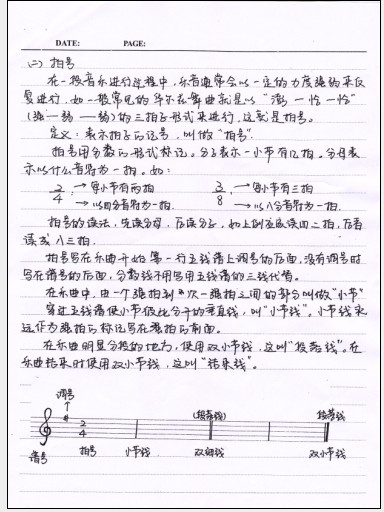 DATE: PAGE:
(二) 拍号
在一般音乐进行过程中，乐音通常会以一定的力度强弱来反
复进行，如一般常见的华尔兹舞曲就是以“澎一恰一恰”
(强一弱一弱)的三拍子形式来进行，这就是拍号。
定义：表示拍子的记号，叫做“拍号”.
拍号用分数的形式标记。分子表示一小节有几拍。分母表
示以什么音符为一拍。如：
2/4 → 每小节有两拍 3/8 → 每小节有三拍
→ 以四分音符为一拍. → 以八分音符为一拍.
拍号的读法，先读分母，后读分子，如上例应该读四二拍，后者
读或八三拍.
拍号写在乐曲开始第一行五线谱上调号的后面，没有调号时
写在谱号的后面，分数线不用写用五线谱的三线代替。
在乐曲中，由一个强拍到次一强拍之间的部分叫做“小节”
穿过五线谱使小节彼此分开的垂直线，叫“小节线”。小节线永
远作为强拍的标记写在强拍的前面。
在乐曲明显分段的地方，使用双小节线，这叫“段落线”。在
乐曲结束时使用双小节线，这叫“结束线”。
调号
(段落线) 段落线
2
4
谱号 拍号 小节线 双细线 双小节线